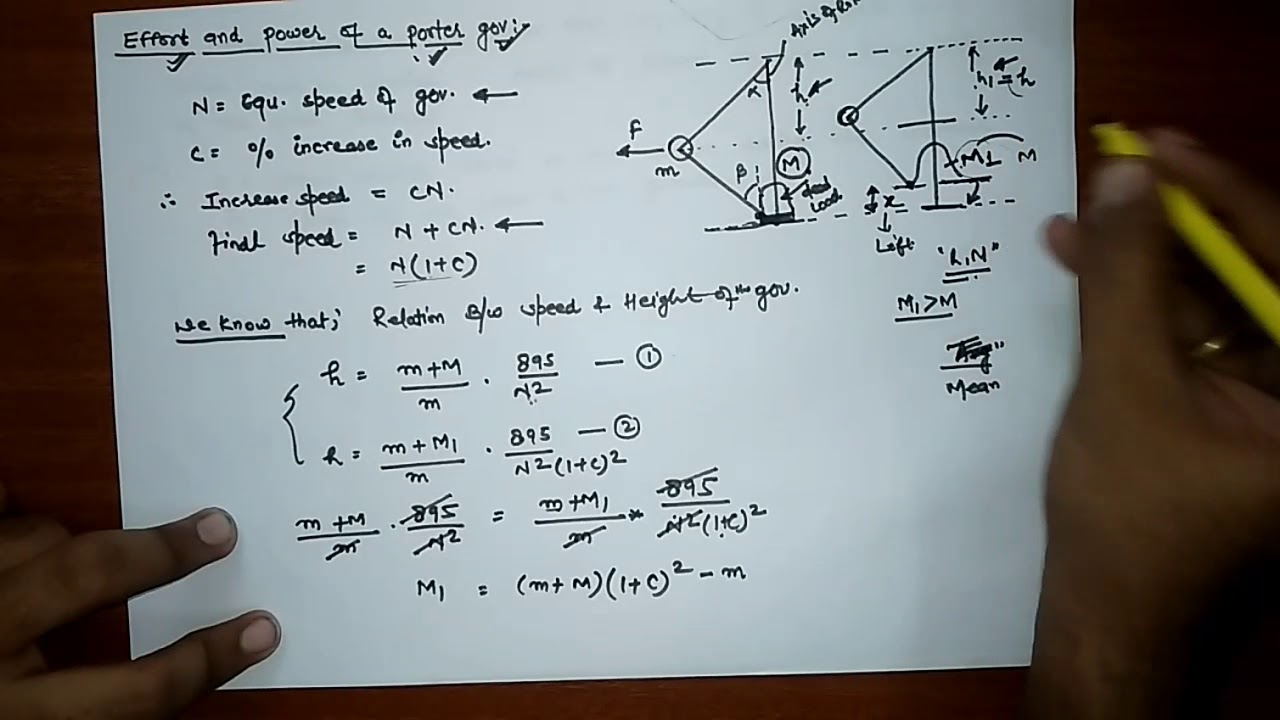 Effort and power of a porter gov:
N = Equ. speed of gov. ←
C = % increase in speed.
∴ Increase speed = CN.
Final speed = N + CN. ←
= N(1+C)
We know that; Relation B/w speed & Height of the gov.
h = m+M/m . 895/N² — ①
h = m+M1/m . 895/N²(1+C)² — ②
m+M/m . 895/N² = m+M1/m * 895/N²(1+C)²
M1 = (m+M)(1+C)² - m
Axis of
α
h
F
m
β
M
dead
Load
h1 = h
M1 M
x
Left
"h, N"
M1 > M
Mean